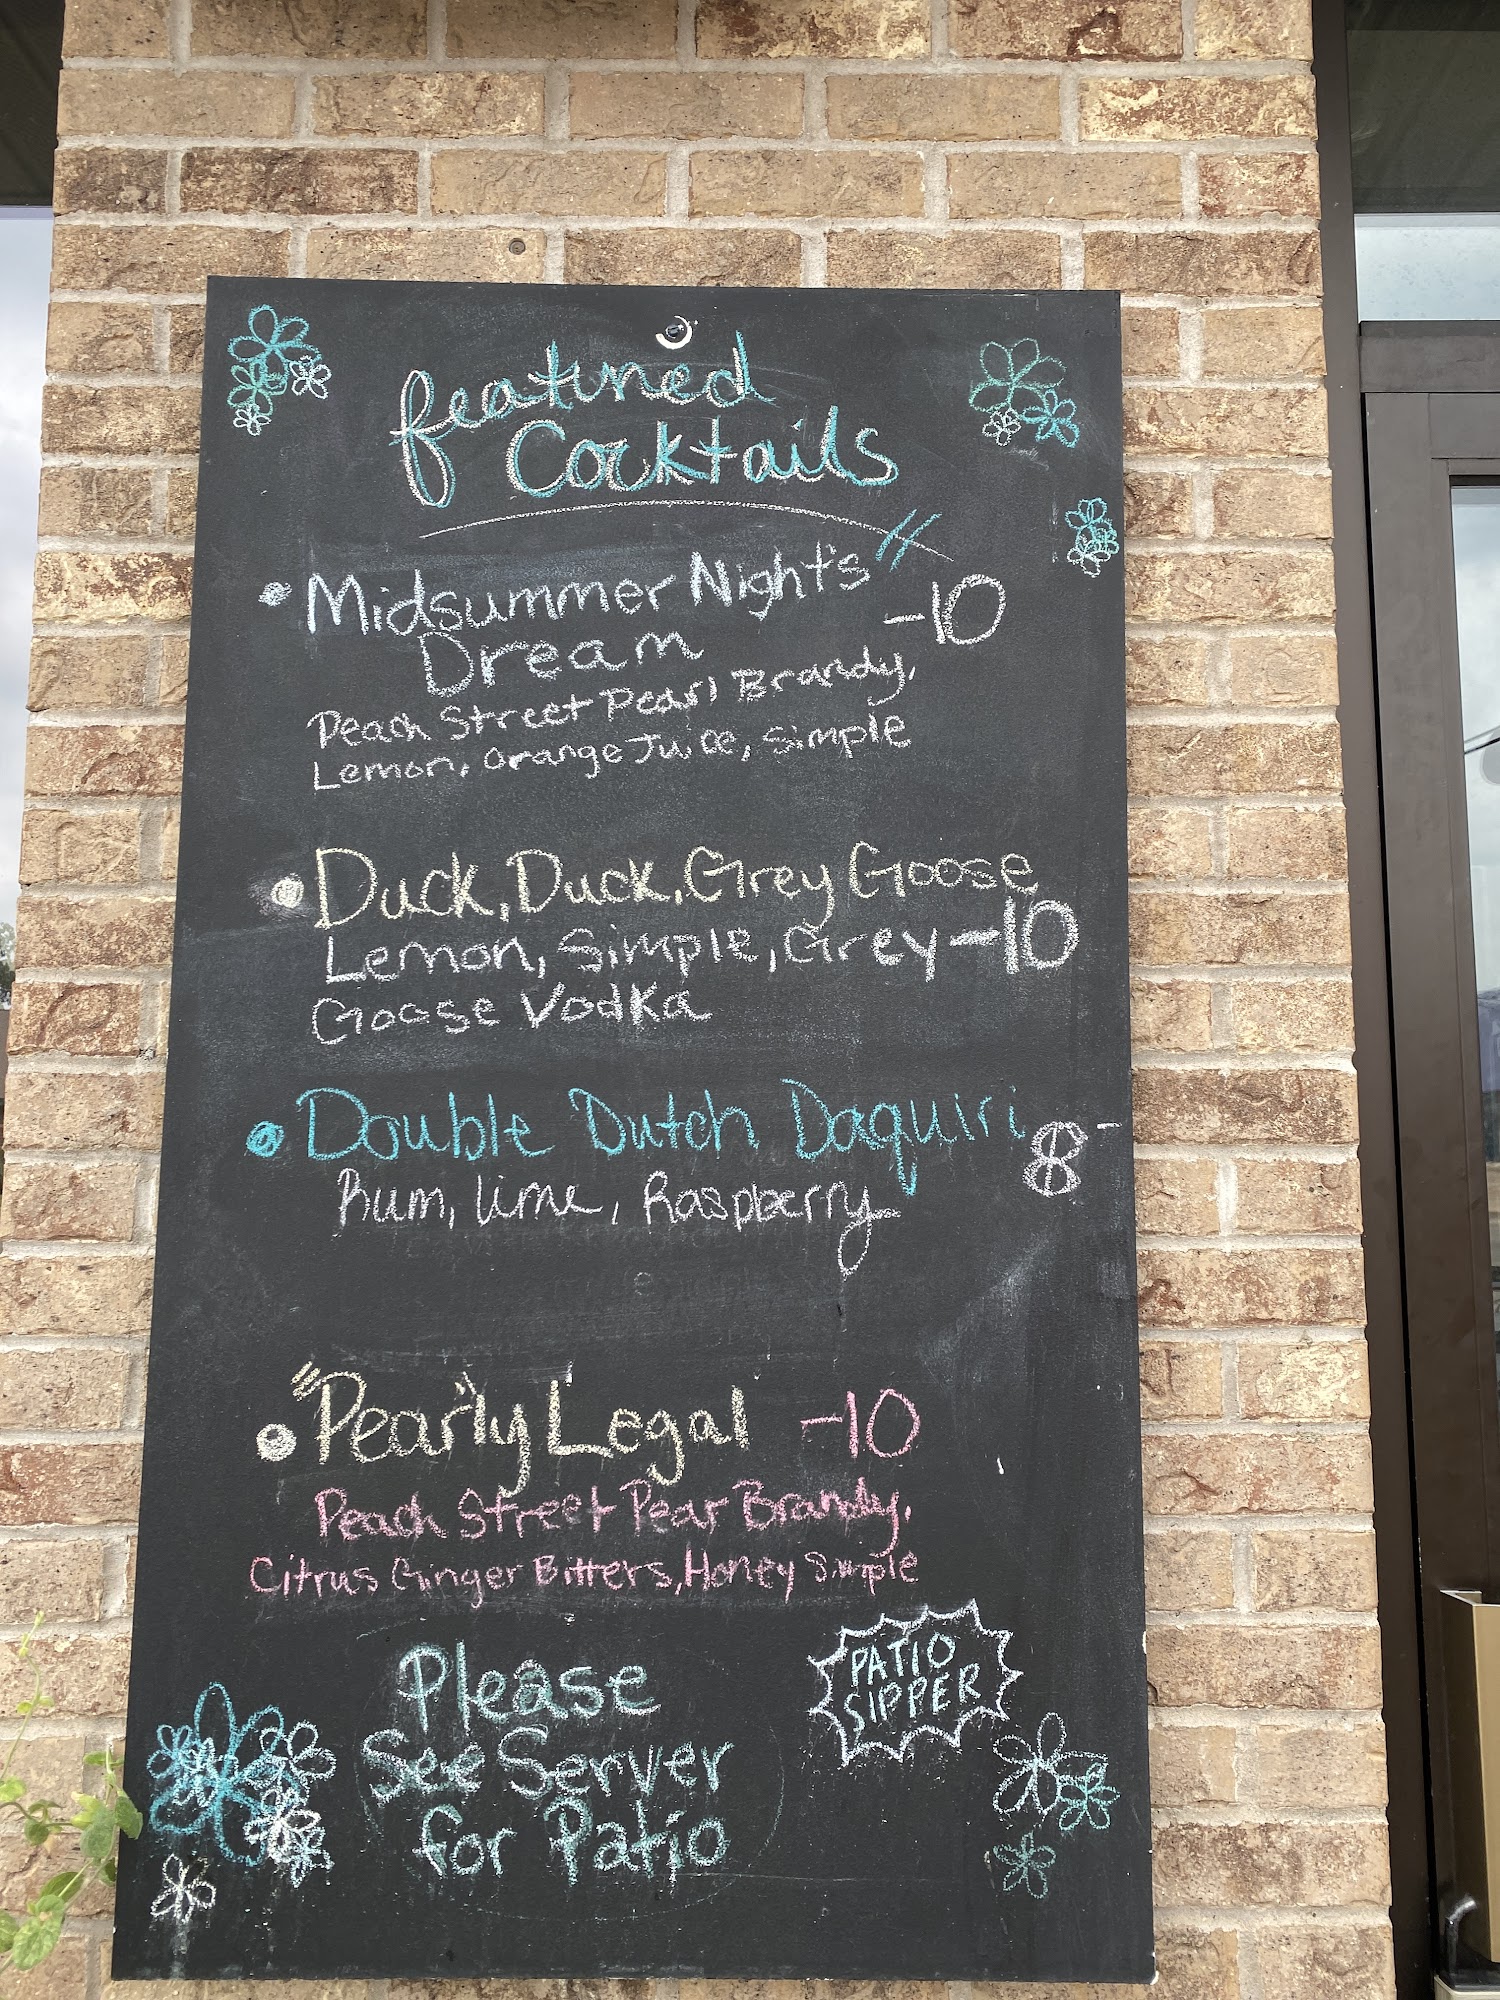 featured
Cocktails
• Midsummer Night's
Dream -10
Peach Street Pearl Brandy,
Lemon, orange Juice, Simple
• Duck, Duck, Grey Goose
Lemon, Simple, Grey -10
Goose Vodka
• Double Dutch Daquiri
Rum, lime, Raspberry 8-
• Pearly Legal -10
Peach Street Pear Brandy,
Citrus Ginger Bitters, Honey Simple
PATIO
SIPPER
Please
See Server
for Patio